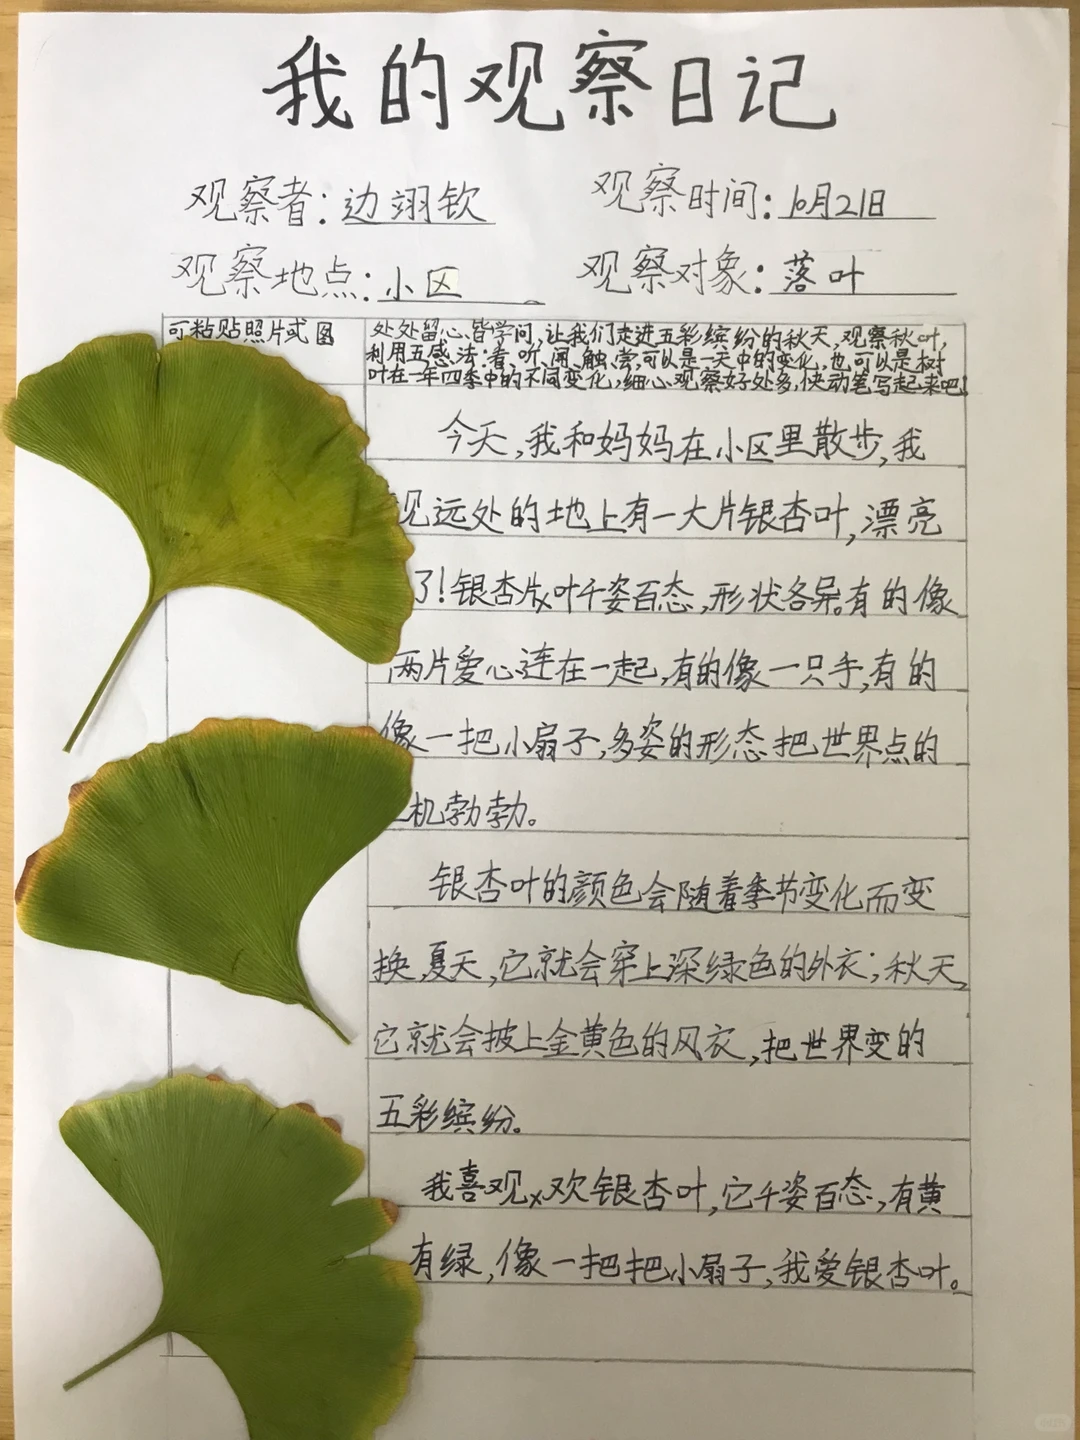 我的观察日记
观察者：边翊钦
观察时间：10月21日
观察地点：小区
观察对象：落叶
可粘贴照片或图
处处留心皆学问，让我们走进五彩缤纷的秋天，观察秋叶，
利用五感法：看、听、闻、触、尝，可以是一天中的变化，也可以是树
叶在一年四季中的不同变化，细心观察好处多，快动笔写起来吧！
今天，我和妈妈在小区里散步，我
见远处的地上有一大片银杏叶，漂亮
了！银杏片叶千姿百态，形状各异。有的像
两片爱心连在一起，有的像一只手，有的
像一把小扇子，多姿的形态把世界点的
机勃勃。
银杏叶的颜色会随着季节变化而变
换，夏天，它就会穿上深绿色的外衣；秋天，
它就会披上金黄色的风衣，把世界变的
五彩缤纷。
我喜观欢银杏叶，它千姿百态，有黄
有绿，像一把把小扇子，我爱银杏叶。